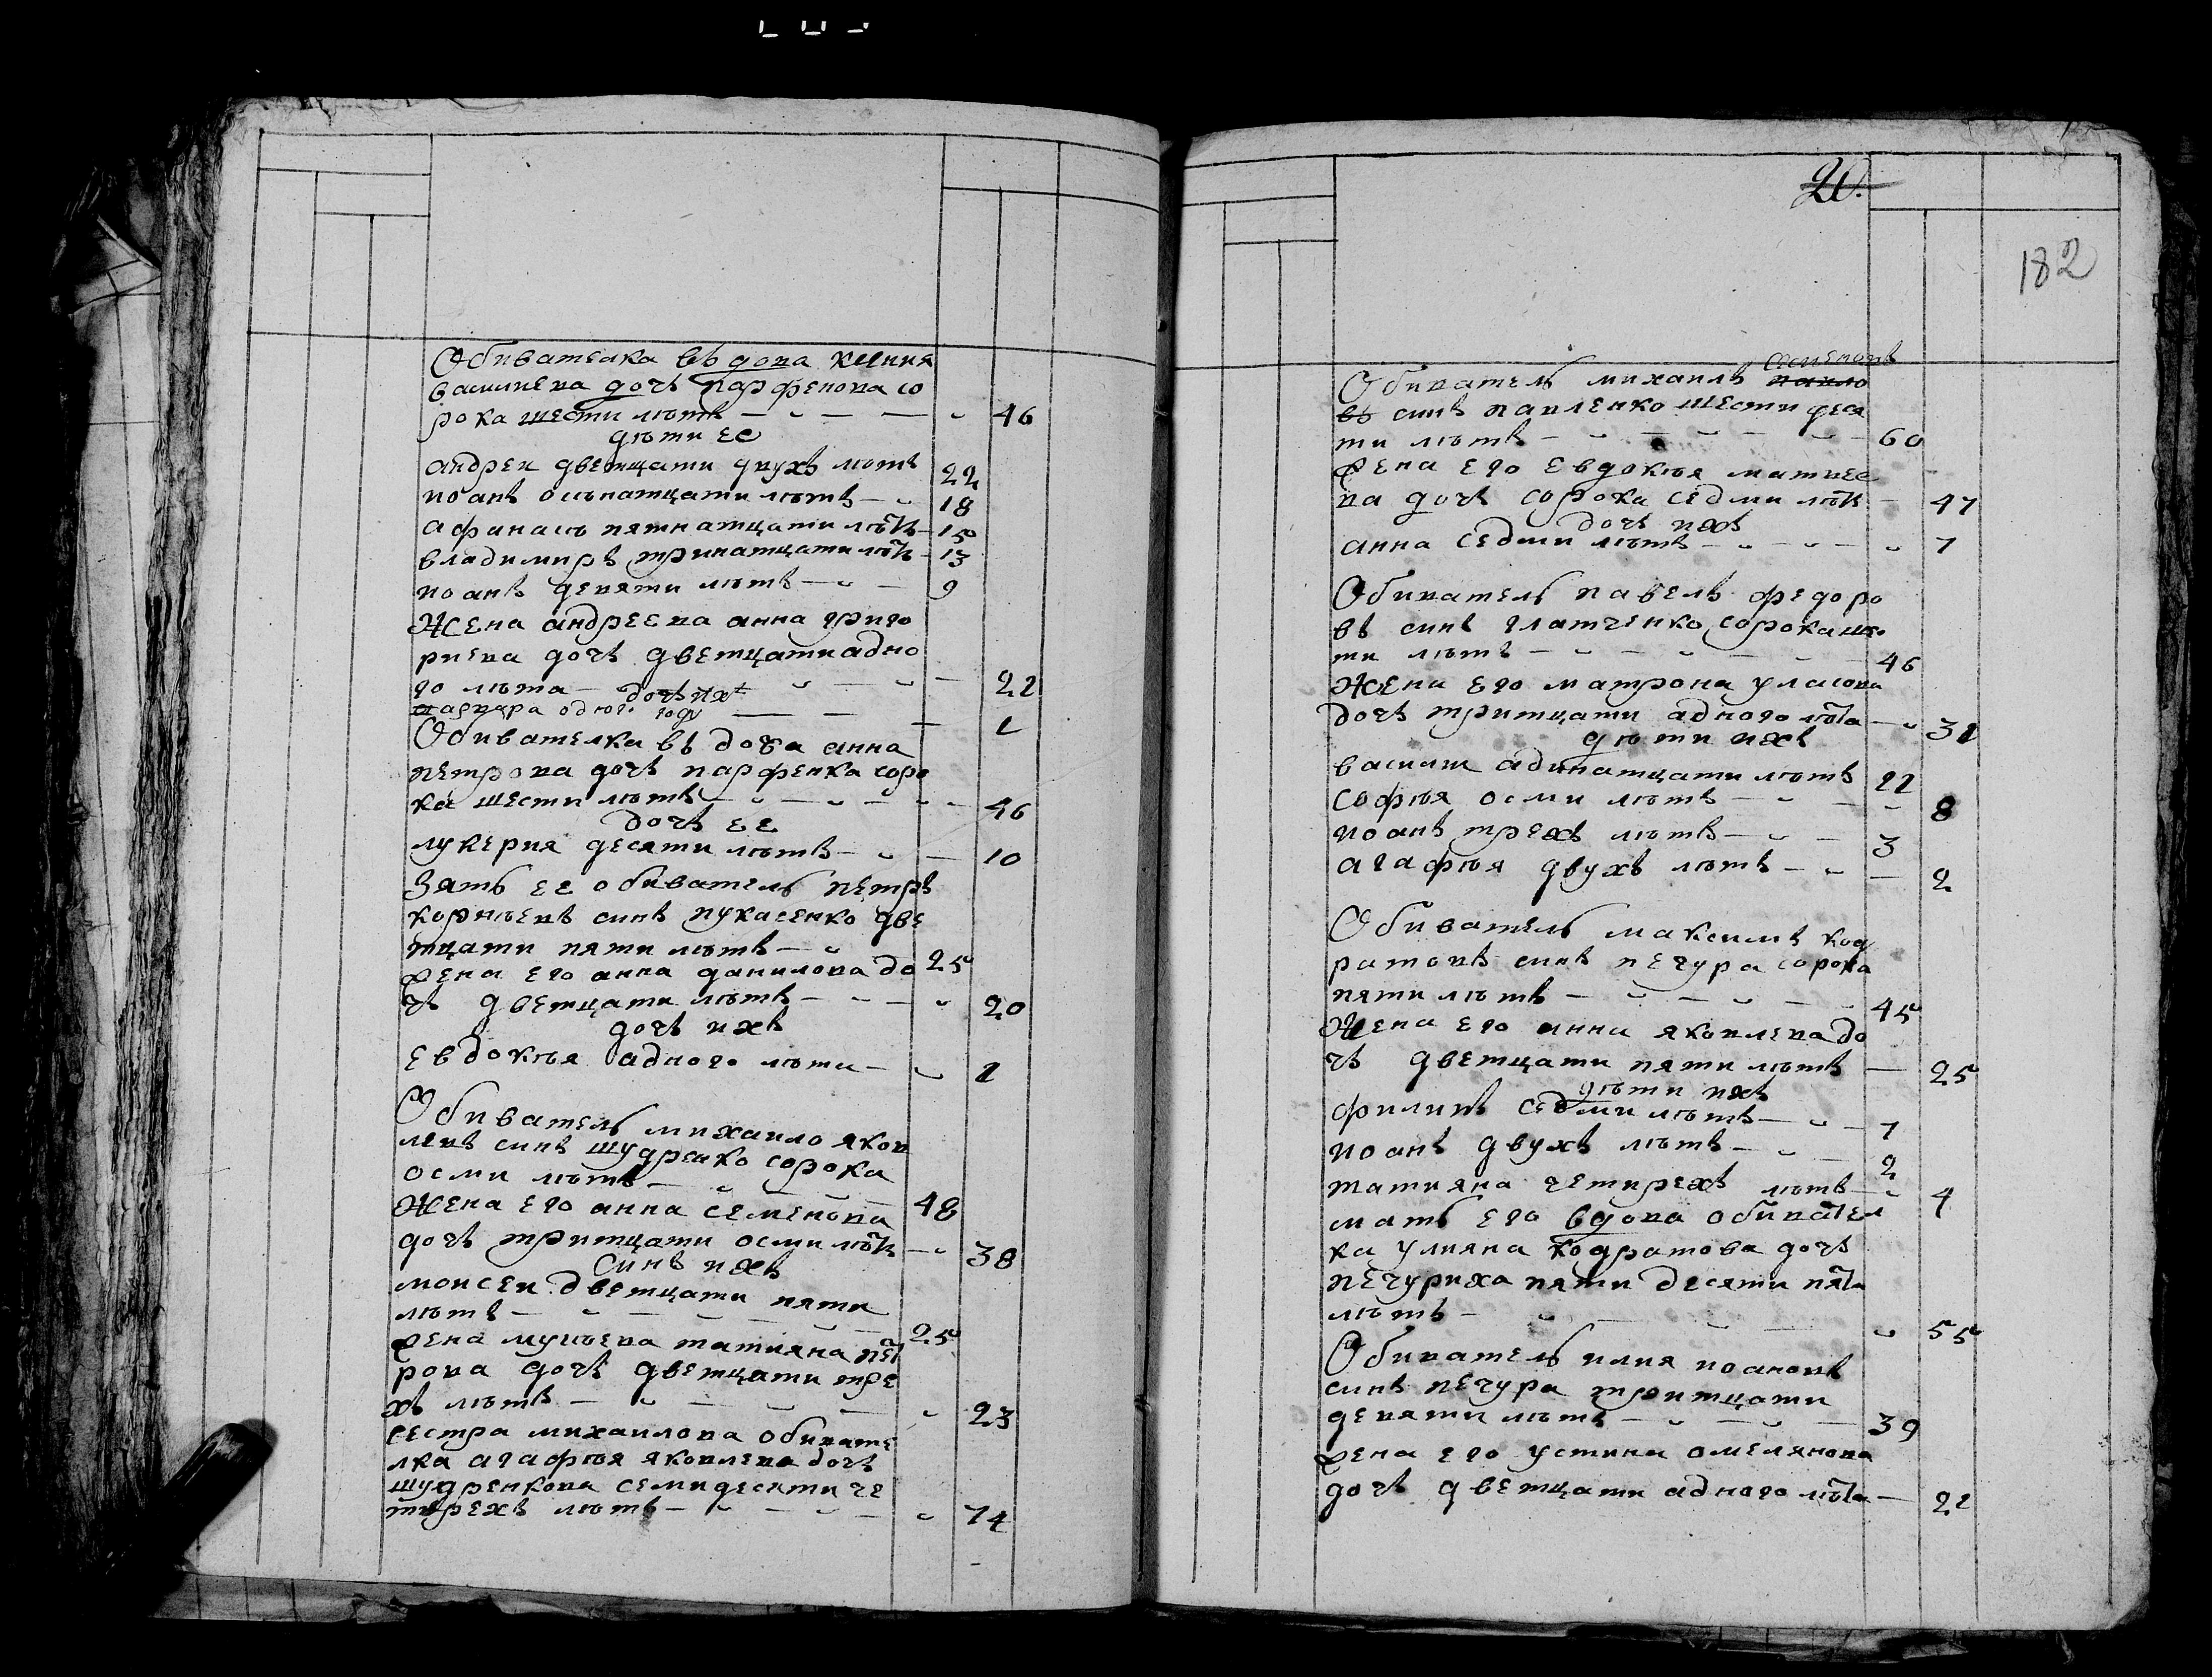 Обивателка въдова ксения
василиева дочъ парфенова со
рока шести лѣтъ — 46
дѣти ее
андреи дветцати двухъ лѣтъ 22
иоанъ осмънатцати лѣтъ — 18
афанасъ пятнатцати лѣтъ — 15
владимиръ тринатцати лѣтъ — 13
иоанъ девяти лѣтъ — 9
Жена андреева анна григо
риева дочъ дветцати адно
го лѣта — 21
дочъ ихъ
одного году — 1
Обивателка въдова анна
петрова дочъ парфенка соро
ка шести лѣтъ — 46
дочъ ее
лукерия десяти лѣтъ — 10
Зять ее обиватель петръ
корнѣевъ синъ лукасенко две
тцати пяти лѣтъ — 25
жена его анна данилова до
чъ дветцати лѣтъ — 20
дочъ ихъ
евдокѣя адного лѣта — 1
Обиватель михаило яков
левъ синъ шудренко сорока
осми лѣтъ — 48
Жена его анна семенова
дочъ тритцати осми лѣтъ — 38
Синъ ихъ
моисеи дветцати пяти
лѣтъ — 25
жена татияна пет
рова дочъ дветцати тре
хъ лѣтъ — 23
сестра михаилова обивате
лка агафѣя яковлева дочъ
шудренкова семидесяти че
тирехъ лѣтъ — 74
20.
182
семеновъ
Обиватель михаилъ павло
въ синъ павленко шести деся
ти лѣтъ — 60
жена его евдокѣя матвее
ва дочъ сорока седми лѣтъ — 47
дочъ ихъ
анна седми лѣтъ — 7
Обиватель павелъ федоро
въ синъ глатченко сорока шес
ти лѣтъ — 46
Жена его матрона уласова
дочъ тритцати адного лѣта — 31
дѣти ихъ
василии адинатцати лѣтъ 11
софѣя осми лѣтъ — 8
иоанъ трехъ лѣтъ — 3
агафѣя двухъ лѣтъ — 2
Обиватель максимъ код
ратовъ синъ печура сорока
пяти лѣтъ — 45
Жена его анна яковлева до
чъ дветцати пяти лѣтъ — 25
дѣти ихъ
филипъ седми лѣтъ — 7
иоанъ двухъ лѣтъ — 2
татияна четирехъ лѣтъ — 4
мать его вдова обивател
ка улияна кодратова дочъ
печуриха пяти десяти пяти
лѣтъ — 55
Обиватель илия иоановъ
синъ печура тритцати
девяти лѣтъ — 39
жена его устина омелянова
дочъ дветцати адного лѣта — 21